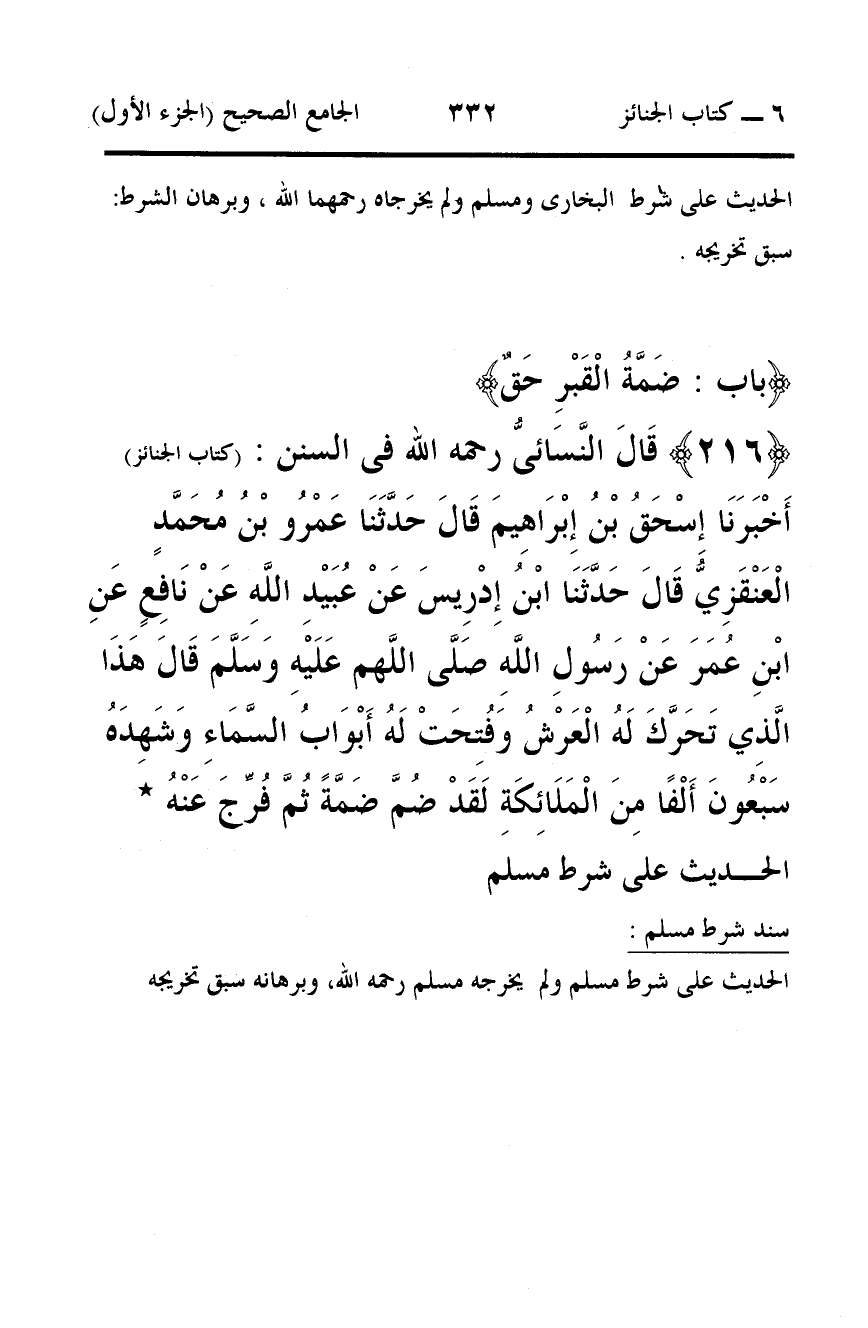 ٦ ــ كتاب الجنائز ٣٣٢ الجامع الصحيح (الجزء الأول)
الحديث على شرط البخارى ومسلم ولم يخرجاه رحمهما الله ، وبرهان الشرط:
سبق تخريجه .
﴿باب : ضَمَّةُ الْقَبْرِ حَقٌ﴾
﴿٢١٦﴾ قَالَ النَّسَائىُّ رحمه الله فى السنن : (كتاب الجنائز)
أَخْبَرَنَا إِسْحَقُ بْنُ إِبْرَاهِيمَ قَالَ حَدَّثَنَا عَمْرُو بْنُ مُحَمَّدٍ
الْعَنْقَزِيُّ قَالَ حَدَّثَنَا ابْنُ إِدْرِيسَ عَنْ عُبَيْدِ اللَّهِ عَنْ نَافِعٍ عَنِ
ابْنِ عُمَرَ عَنْ رَسُولِ اللَّهِ صَلَّى اللَّهم عَلَيْهِ وَسَلَّمَ قَالَ هَذَا
الَّذِي تَحَرَّكَ لَهُ الْعَرْشُ وَفُتِحَتْ لَهُ أَبْوَابُ السَّمَاءِ وَشَهِدَهُ
سَبْعُونَ أَلْفًا مِنَ الْمَلَائِكَةِ لَقَدْ ضُمَّ ضَمَّةً ثُمَّ فُرِّجَ عَنْهُ *
الحـــديث على شرط مسلم
سند شرط مسلم :
الحديث على شرط مسلم ولم يخرجه مسلم رحمه الله، وبرهانه سبق تخريجه